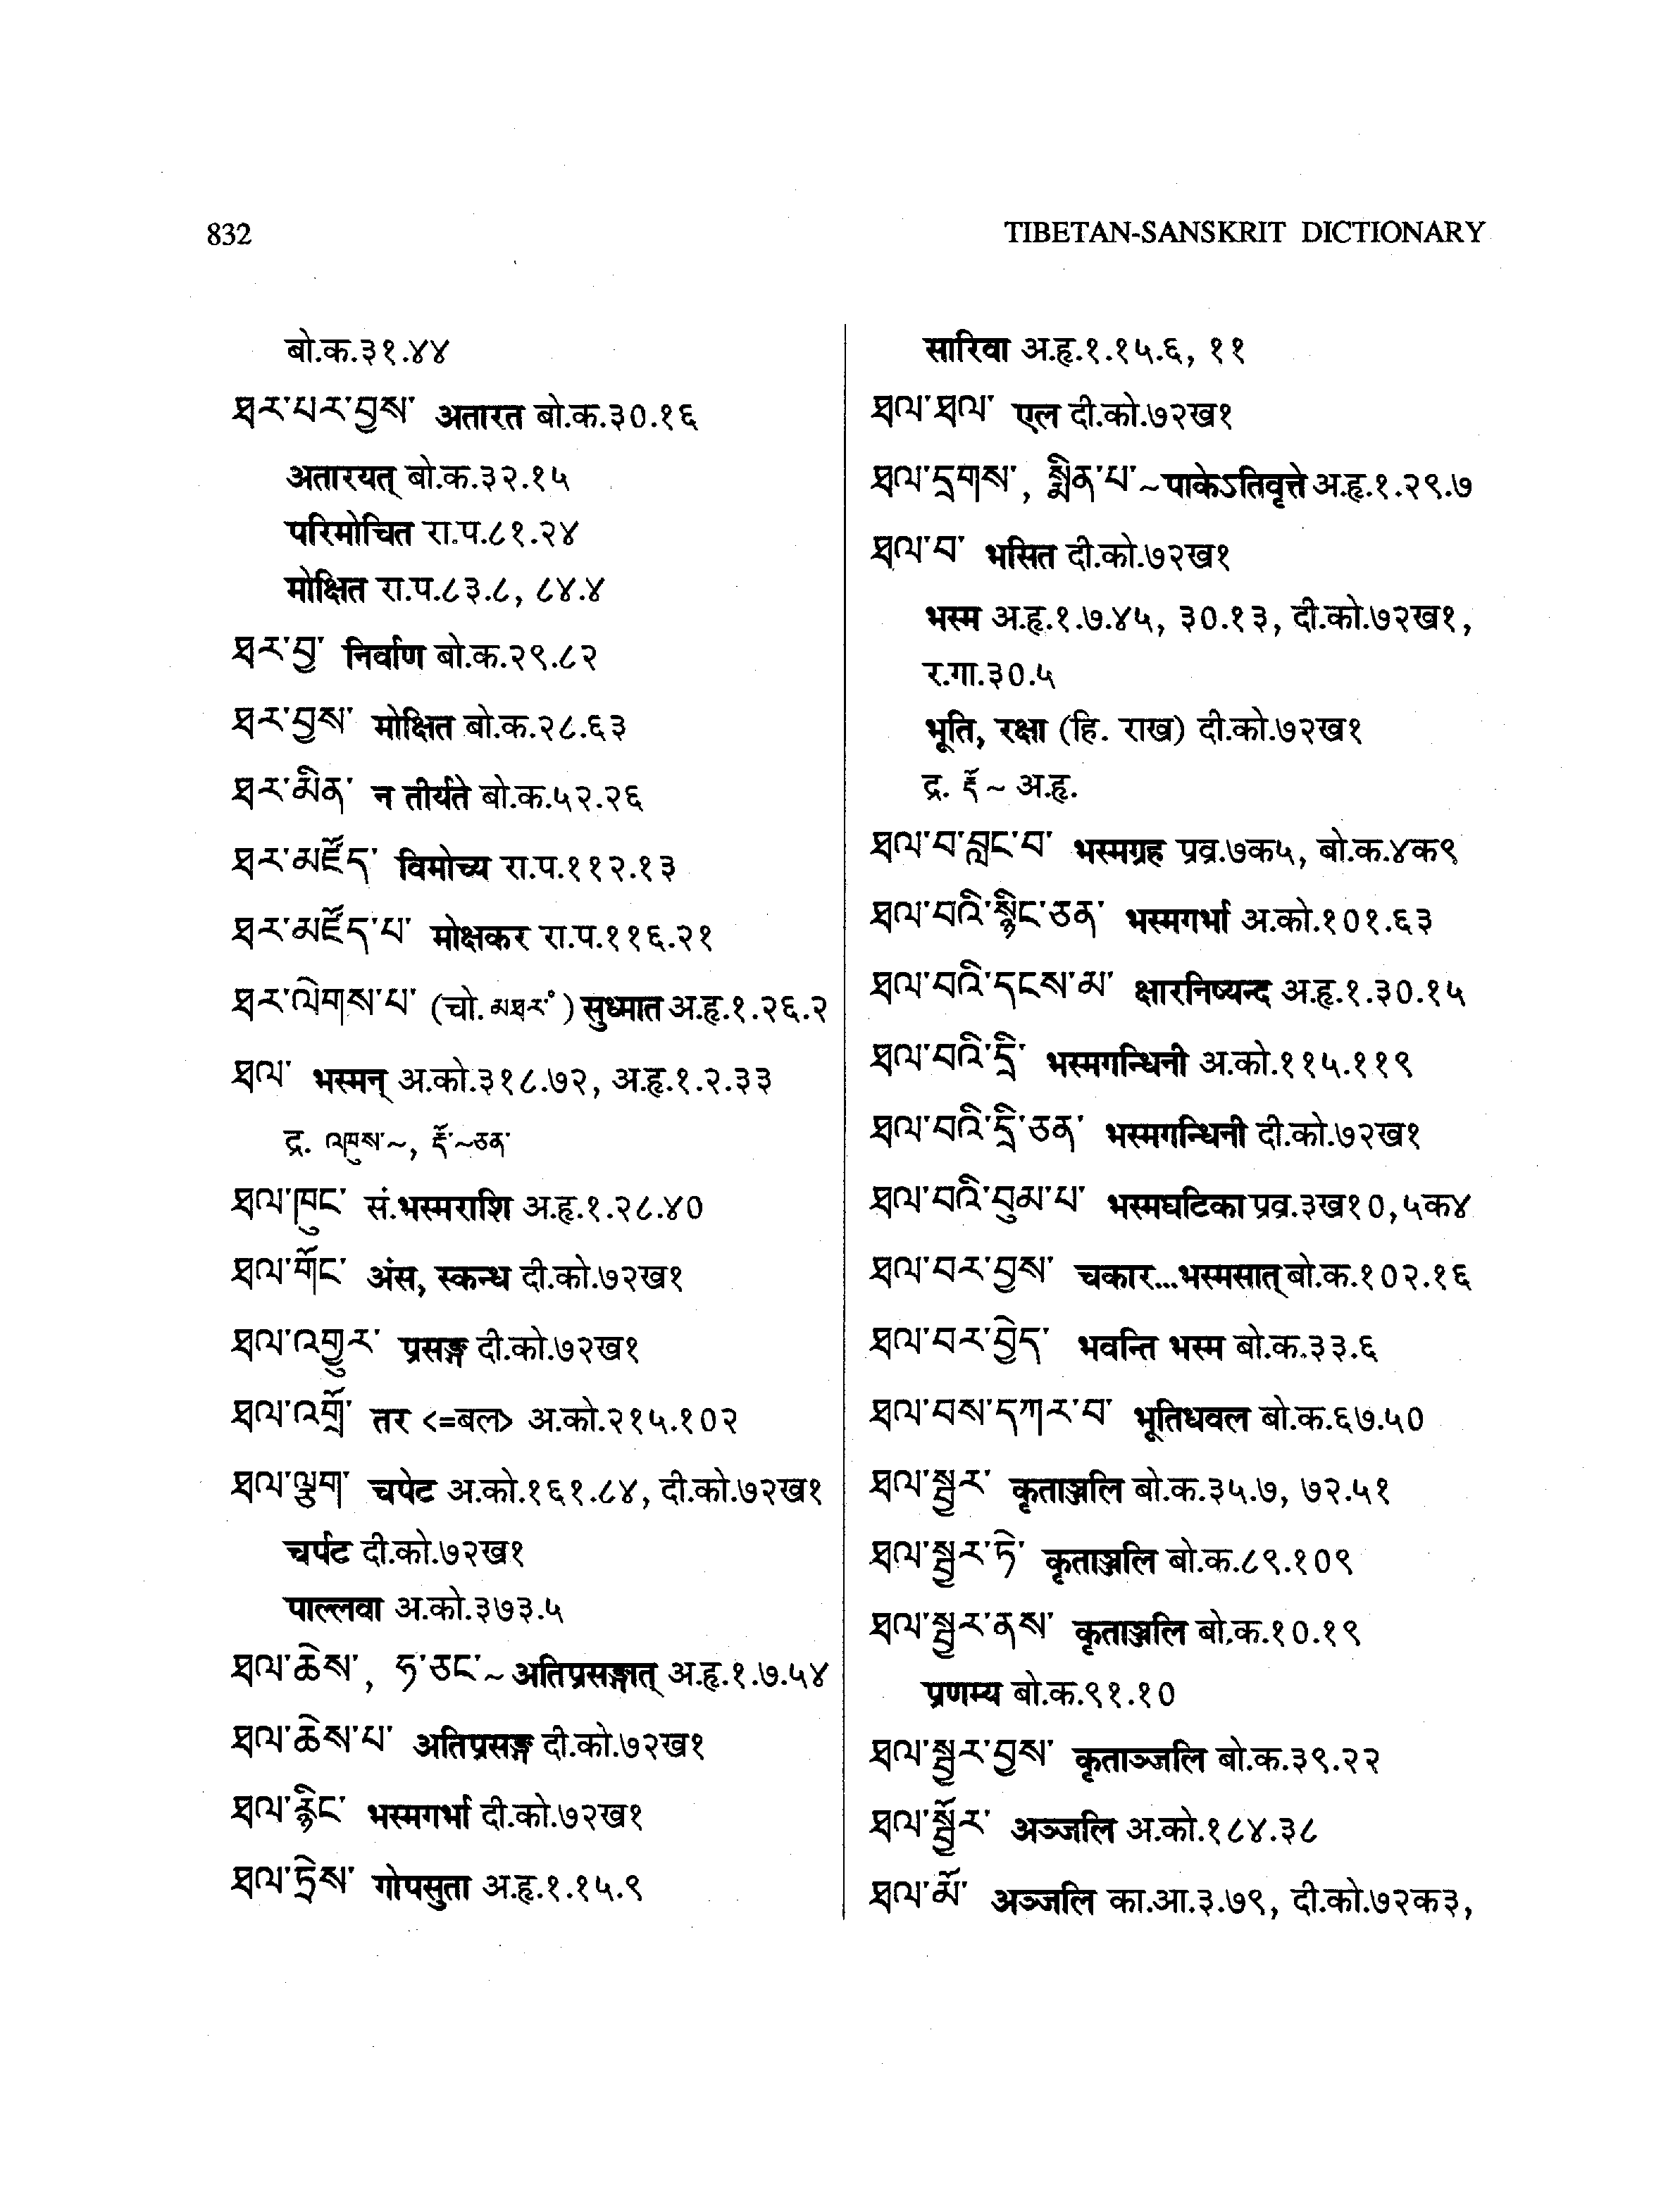 832
TIBETAN-SANSKRIT DICTIONARY
बो.क.३१.४४
ཐར་པར་བྱས་ अतारत बो.क.३०.१६
अतारयत् बो.क.३२.१५
परिमोचित रा.प.८१.२४
मोक्षित रा.प.८३.८, ८४.४
ཐར་བྱ་ निर्वाण बो.क.२९.८२
ཐར་བྱས་ मोक्षित बो.क.२८.६३
ཐར་མིན་ न तीर्यते बो.क.५२.२६
ཐར་མཛོད་ विमोच्य रा.प.११२.१३
ཐར་མཛོད་པ་ मोक्षकर रा.प.११६.२१
ཐར་ལེགས་པ་ (चो. མཐར་॰) सुध्मात अ.हृ.१.२६.२
ཐལ་ भस्मन् अ.को.३१८.७२, अ.हृ.१.२.३३
द्र. འཁུས་~, རྡོ་~ཅན་
ཐལ་ཁུང་ सं.भस्मराशि अ.हृ.१.२८.४०
ཐལ་གོང་ अंस, स्कन्ध दी.को.७२ख१
ཐལ་འགྱུར་ प्रसङ्ग दी.को.७२ख१
ཐལ་འགྲོ་ तर <=बल> अ.को.२१५.१०२
ཐལ་ལྕག་ चपेट अ.को.१६१.८४, दी.को.७२ख१
चर्पट दी.को.७२ख१
पाल्लवा अ.को.३७३.५
ཐལ་ཆེས་, ཧ་ཅང་~ अतिप्रसङ्गात् अ.हृ.१.७.५४
ཐལ་ཆེས་པ་ अतिप्रसङ्ग दी.को.७२ख१
ཐལ་རྙིང་ भस्मगर्भा दी.को.७२ख१
ཐལ་ཏྲེས་ गोपसुता अ.हृ.१.१५.९
सारिवा अ.हृ.१.१५.६, ११
ཐལ་ཐལ་ एल दी.को.७२ख१
ཐལ་དྲགས་, སྨིན་པ་~ पाकेऽतिवृत्ते अ.हृ.१.२९.७
ཐལ་བ་ भसित दी.को.७२ख१
भस्म अ.हृ.१.७.४५, ३०.१३, दी.को.७२ख१,
र.गा.३०.५
भूति, रक्षा (हि. राख) दी.को.७२ख१
द्र. རྡོ~ अ.हृ.
ཐལ་བ་བླང་བ་ भस्मग्रह प्रव्र.७क५, बो.क.४क९
ཐལ་བའི་སྙིང་ཅན་ भस्मगर्भा अ.को.१०१.६३
ཐལ་བའི་དྭངས་མ་ क्षारनिष्यन्द अ.हृ.१.३०.१५
ཐལ་བའི་དྲི་ भस्मगन्धिनी अ.को.११५.११९
ཐལ་བའི་དྲི་ཅན་ भस्मगन्धिनी दी.को.७२ख१
ཐལ་བའི་བུམ་པ་ भस्मघटिका प्रव्र.३ख१०,५क४
ཐལ་བར་བྱས་ चकार...भस्मसात् बो.क.१०२.१६
ཐལ་བར་བྱེད་ भवन्ति भस्म बो.क.३३.६
ཐལ་བས་དཀར་བ་ भूतिधवल बो.क.६७.५०
ཐལ་སྦྱར་ कृताञ्जलि बो.क.३५.७, ७२.५१
ཐལ་སྦྱར་ཏེ་ कृताञ्जलि बो.क.८९.१०९
ཐལ་སྦྱར་ནས་ कृताञ्जलि बो.क.१०.१९
प्रणम्य बो.क.९१.१०
ཐལ་སྦྱར་བྱས་ कृताञ्जलि बो.क.३९.२२
ཐལ་སྦྱོར་ अञ्जलि अ.को.१८४.३८
ཐལ་མོ་ अञ्जलि का.आ.३.७९, दी.को.७२क३,